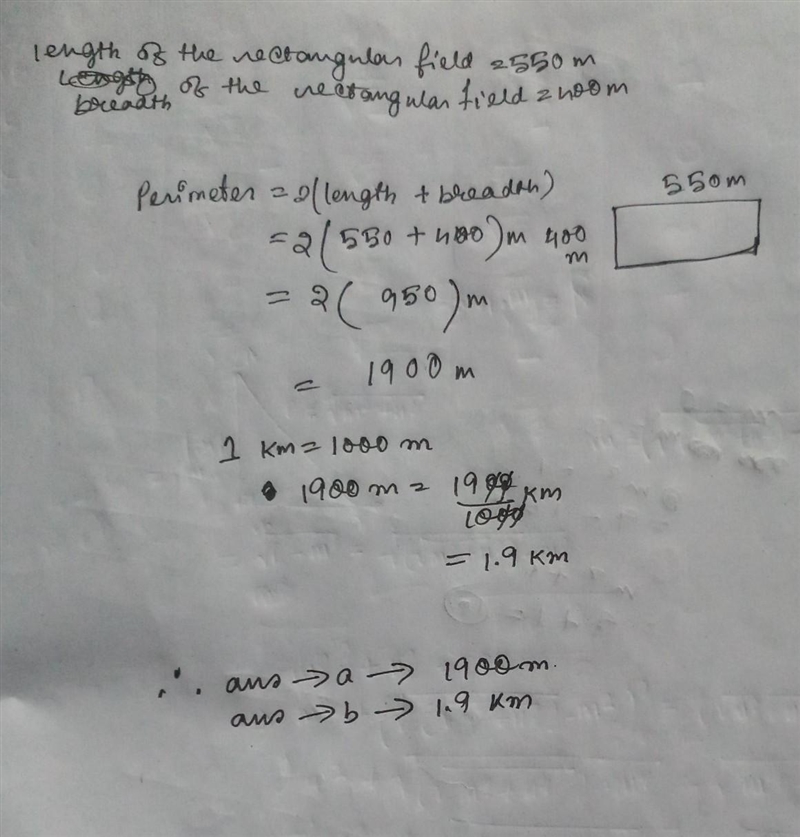 Length of the rectangular field = 550 m
breadth of the rectangular field = 400 m
Perimeter = 2(length + breadth)
550 m
= 2(550 + 400) m
400 m
= 2(950) m
= 1900 m
1 Km = 1000 m
1900 m = 1900/1000 Km
= 1.9 Km
∴ ans → a → 1900 m.
ans → b → 1.9 Km